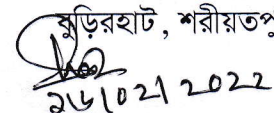 বুড়িরহাট, শরীয়তপু
২৬/০২/২০২২